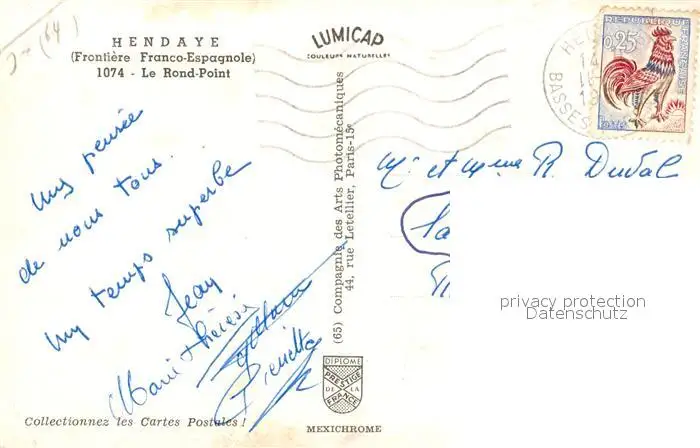 J- (64)
HENDAYE
(Frontière Franco-Espagnole)
1074 - Le Rond-Point
LUMICAP
COULEURS NATURELLES
REPUBLIQUE FRANÇAISE
0,25
POSTES
HEN
BASSES
Une pensée
de nous tous.
Un temps superbe
Jean
Marie Thérèse
Pierrette
(65) Compagnie des Arts Photomécaniques
44, rue Letellier, Paris-15e
Mr et Mme R. Duval
privacy protection
Datenschutz
DIPLOME
PRESTIGE
DE LA
FRANCE
Collectionnez les Cartes Postales !
MEXICHROME